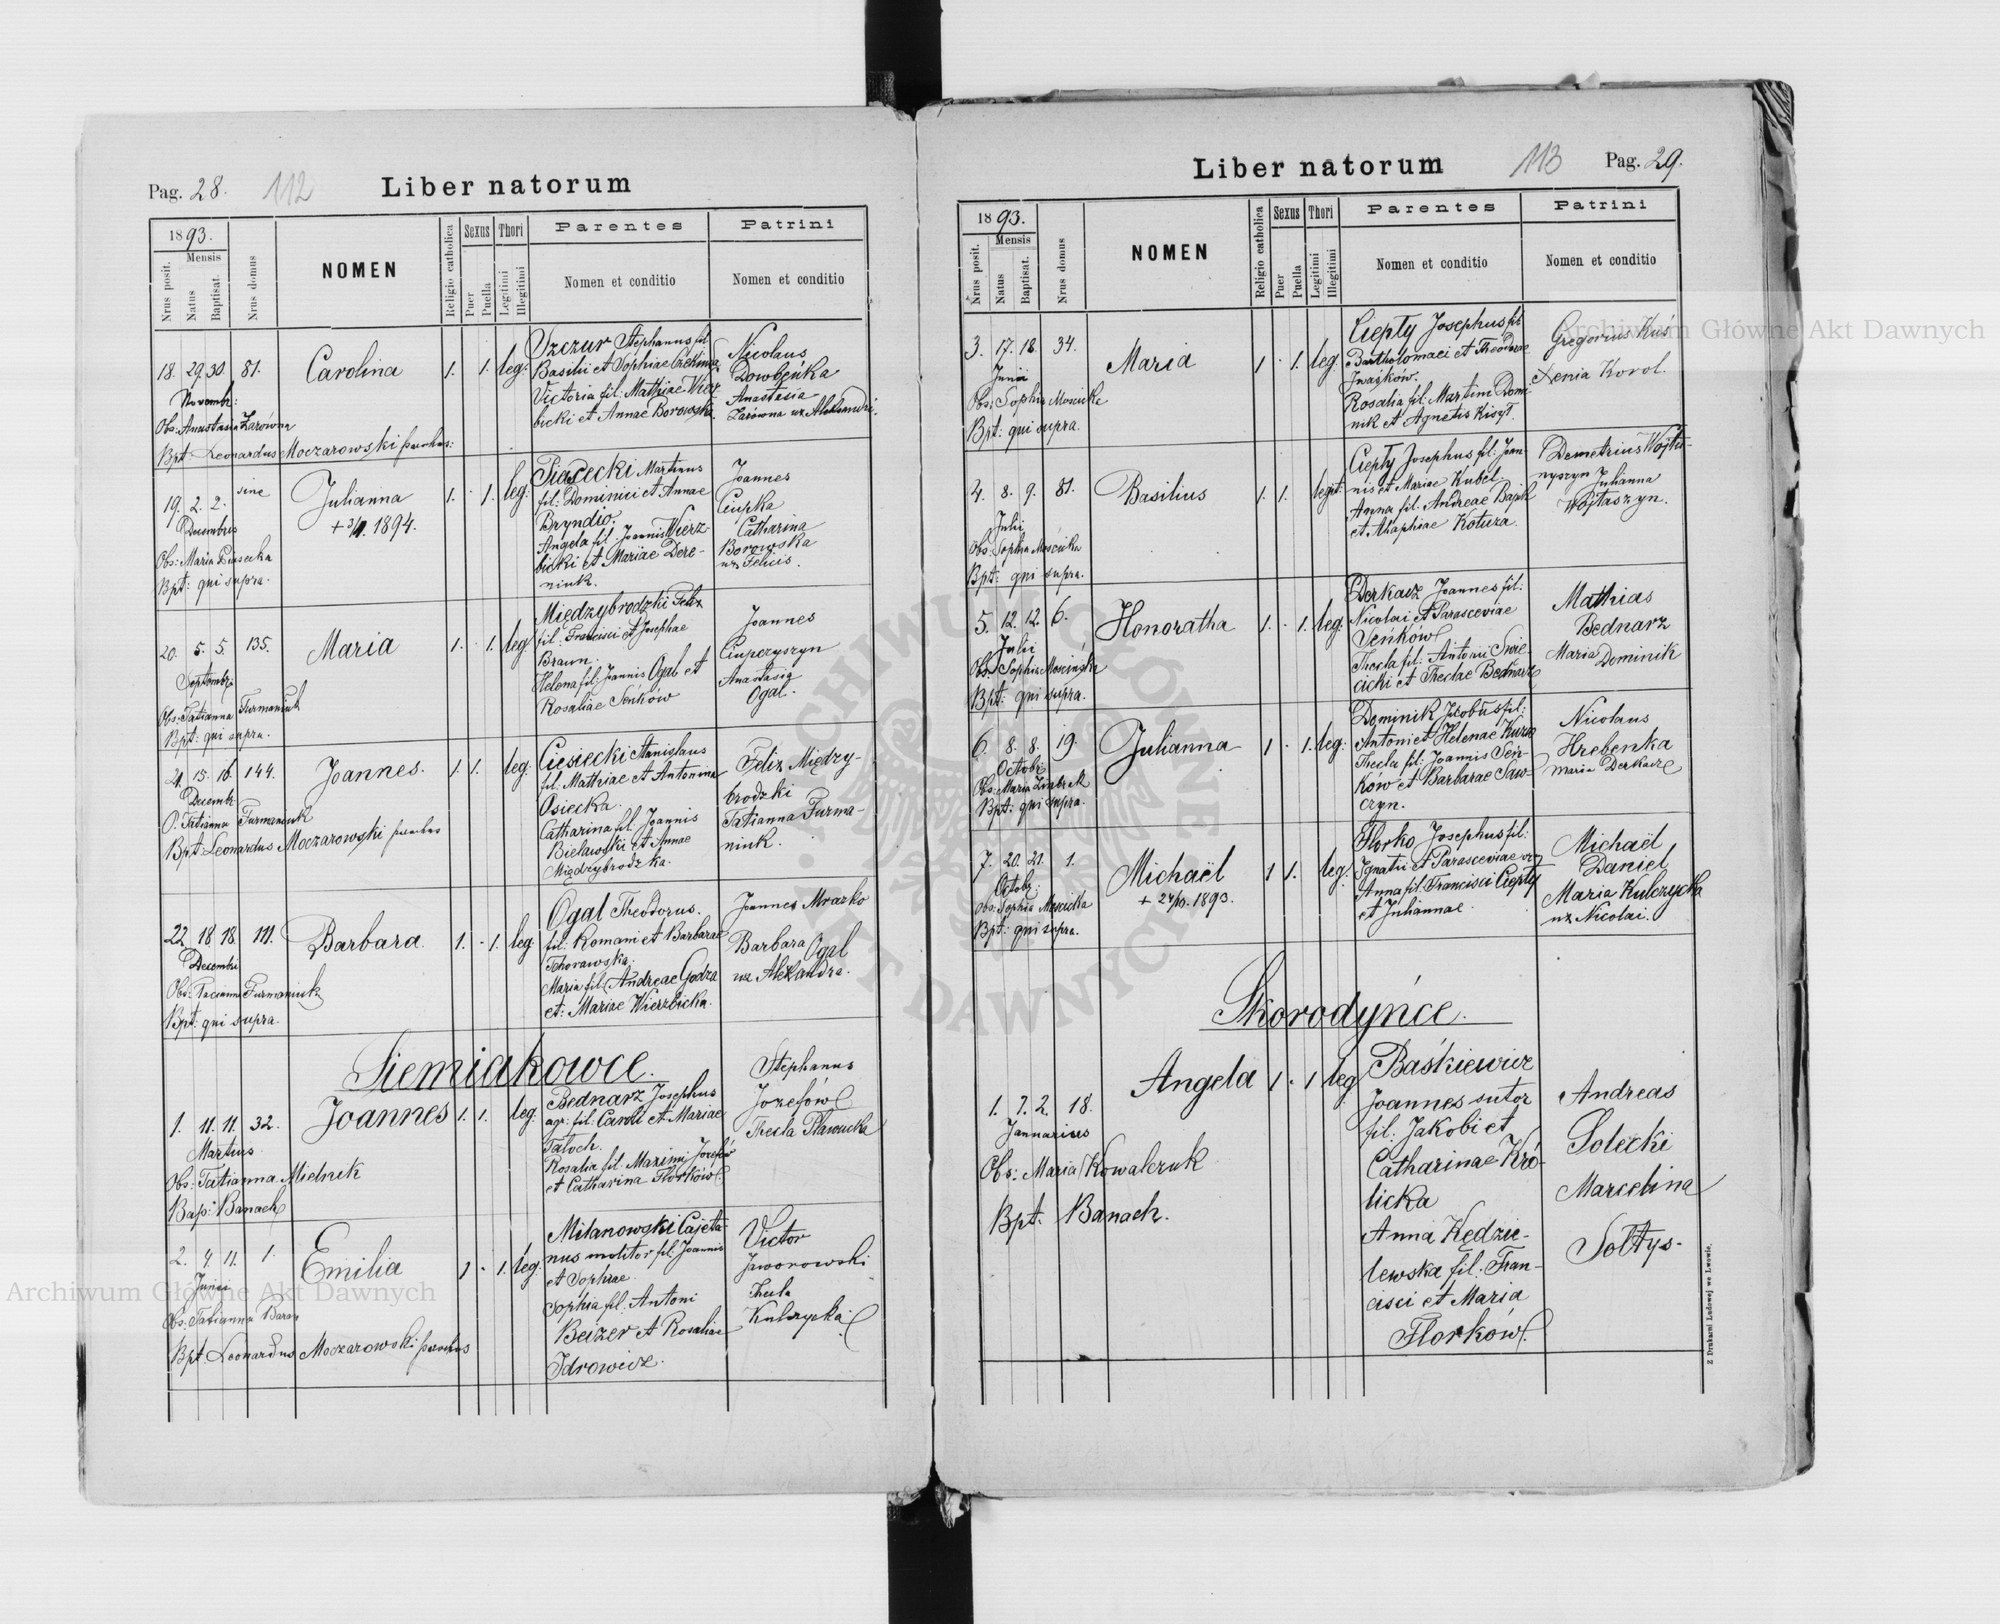 Pag. 28. 112 Liber natorum
1893.
Mensis
Nrus posit.
Natus
Baptisat.
Nrus domus
NOMEN
Religio catholica
Sexus
Puer
Puella
Thori
Legitimi
Illegitimi
Parentes
Nomen et conditio
Patrini
Nomen et conditio
18. 29. 30 81. Carolina 1. 1. leg.
Novembr:
Obs: Anastasia Zarówna
Bpt: Leonardus Moczarowski parochus.
Szczur Stephanus fil
Basilii et Sophiae
Victoria fil: Mathiae Wierz
bicki et Annae Borowska.
Nicolaus
Dowbeńka
Anastasia
Zarówna ux Aleksandri.
19. 2. 2. sine Julianna 1. 1. leg:
+ 1894.
Decembris
Obs: Maria Piasecka
Bpt: qui supra.
Piasecki Martinus
fil: Dominici et Annae
Bryndio.
Angela fil. Joannis Wierz-
bicki et Mariae Dere-
niuk.
Joannes
Ciupka
Catharina
Borowska
ux Felicis.
20. 5. 5. 135. Maria 1. 1. leg.
Septembr.
Obs: Tatianna Furmaniuk
Bpt: qui supra.
Międzybrodzki Felix
fil. Francisci et Josephae
Braun.
Helena fil. Joannis Ogal et
Rosaliae Seńków
Joannes
Ciuperyszyn
Anastasia
Ogal.
21. 15. 16. 144. Joannes. 1. 1. leg.
Decembr
O. Tatianna Furmaniuk
Bpt: Leonardus Moczarowski parochus
Ciesiecki Stanislaus
fil. Mathiae et Antonina
Osiecka.
Catharina fil. Joannis
Bielawski et Annae
Międzybrodzka.
Felix Między-
brodzki
Tatianna Furma-
niuk.
22 18 18. 111. Barbara. 1. 1. leg.
Decembri
Obs: Tacianna Furmaniuk
Bpt: qui supra.
Ogal Theodorus.
fil: Romani et Barbarae
Tchorawska.
Maria fil. Andreae Godza
et: Mariae Wierzbicka.
Joannes Mrazko
Barbara Ogal
ux Alexandra.
Siemiakowce.
1. 11. 11. 32. Joannes 1. 1. leg.
Martius.
Obs: Tatianna Mielnik
Bap: Banach
Bednarz Josephus
agr. fil. Caroli et Mariae
Tatuch.
Rosalia fil. Maximi Jozefów
et Catharina Florków.
Stephanus
Jozefów
Thecla Sławucka
2. 4. 11. 1. Emilia 1 1. leg.
Junii
Obs. Tatianna Baran
Bpt Leonardus Moczarowski parochus
Milanowski Cajeta-
nus molitor fil. Joannis
et Sophiae.
Sophia fil. Antoni
Beizer et Rosaliae
Idrowicz.
Victor
Jaworowski
Thecla
Kulczycka
Liber natorum 113 Pag. 29.
1893.
Mensis
Nrus posit.
Natus
Baptisat.
Nrus domus
NOMEN
Religio catholica
Sexus
Puer
Puella
Thori
Legitimi
Illegitimi
Parentes
Nomen et conditio
Patrini
Nomen et conditio
3. 17. 18. 34. Maria 1 1. leg.
Junii
Obs: Sophia Moscicka
Bpt: qui supra.
Ciepły Josephus fil
Bartholomaei et Theodorae
Iwaśków.
Rosalia fil. Martini Domi
nik et Agnetis Kisyt.
Gregorius Kuś
Xenia Korol.
4. 8. 9. 81. Basilius 1. 1. legit.
Julii
Obs: Sophia Moscicka
Bpt: qui supra.
Ciepły Josephus fil: Joan-
nis et Mariae Kubel
Anna fil. Andreae Bajuk
et Ahaphiae Kotuza.
Demetrius Wojta-
nyszyn Julianna
Wojtaszyn.
5. 12. 12. 6. Honoratha 1. 1. leg.
Julii
Obs: Sophia Moscińska
Bpt: qui supra.
Derkacz Joannes fil:
Nicolai et Parasceviae
Seńków
Thecla fil. Antoni Swie-
cicki et Theclae Bednarz
Mathias
Bednarz
Maria Dominik
6. 8. 8. 19. Julianna 1 1. leg.
Octobr.
Obs: Maria Zimbrak
Bpt: qui supra.
Dominik Jacobus fil:
Antoni et Helenae Kuza
Thecla fil. Joannis Seń-
ków et Barbarae Saw-
czyn.
Nicolaus
Hrebenka
Maria Derkacz
7. 20. 21. 1. Michaël 1 1. leg.
+ 24/10. 1893.
Octobr.
Obs: Sophia Moscicka
Bpt: qui supra.
Florko Josephus fil:
Ignatii et Parasceviae
Anna fil. Francisci Ciepły
et Juliannae.
Michaël
Daniel
Maria Kulczycka
ux Nicolai.
Skorodyńce.
1. 7. 2. 18. Angela 1 1 leg
Januarius
Obs: Maria Kowalczuk
Bpt: Banach.
Baśkiewicz
Joannes sutor
fil: Jakobi et
Catharinae Kró-
licka
Anna Kędzie-
lewska fil. Fran-
cisci et Maria
Florków.
Andreas
Solecki
Marcelina
Sołtys.
Z Drukarni Ludowej we Lwowie.
Archiwum Główne Akt Dawnych
Archiwum Główne Akt Dawnych
ARCHIWUM GŁÓWNE AKT DAWNYCH